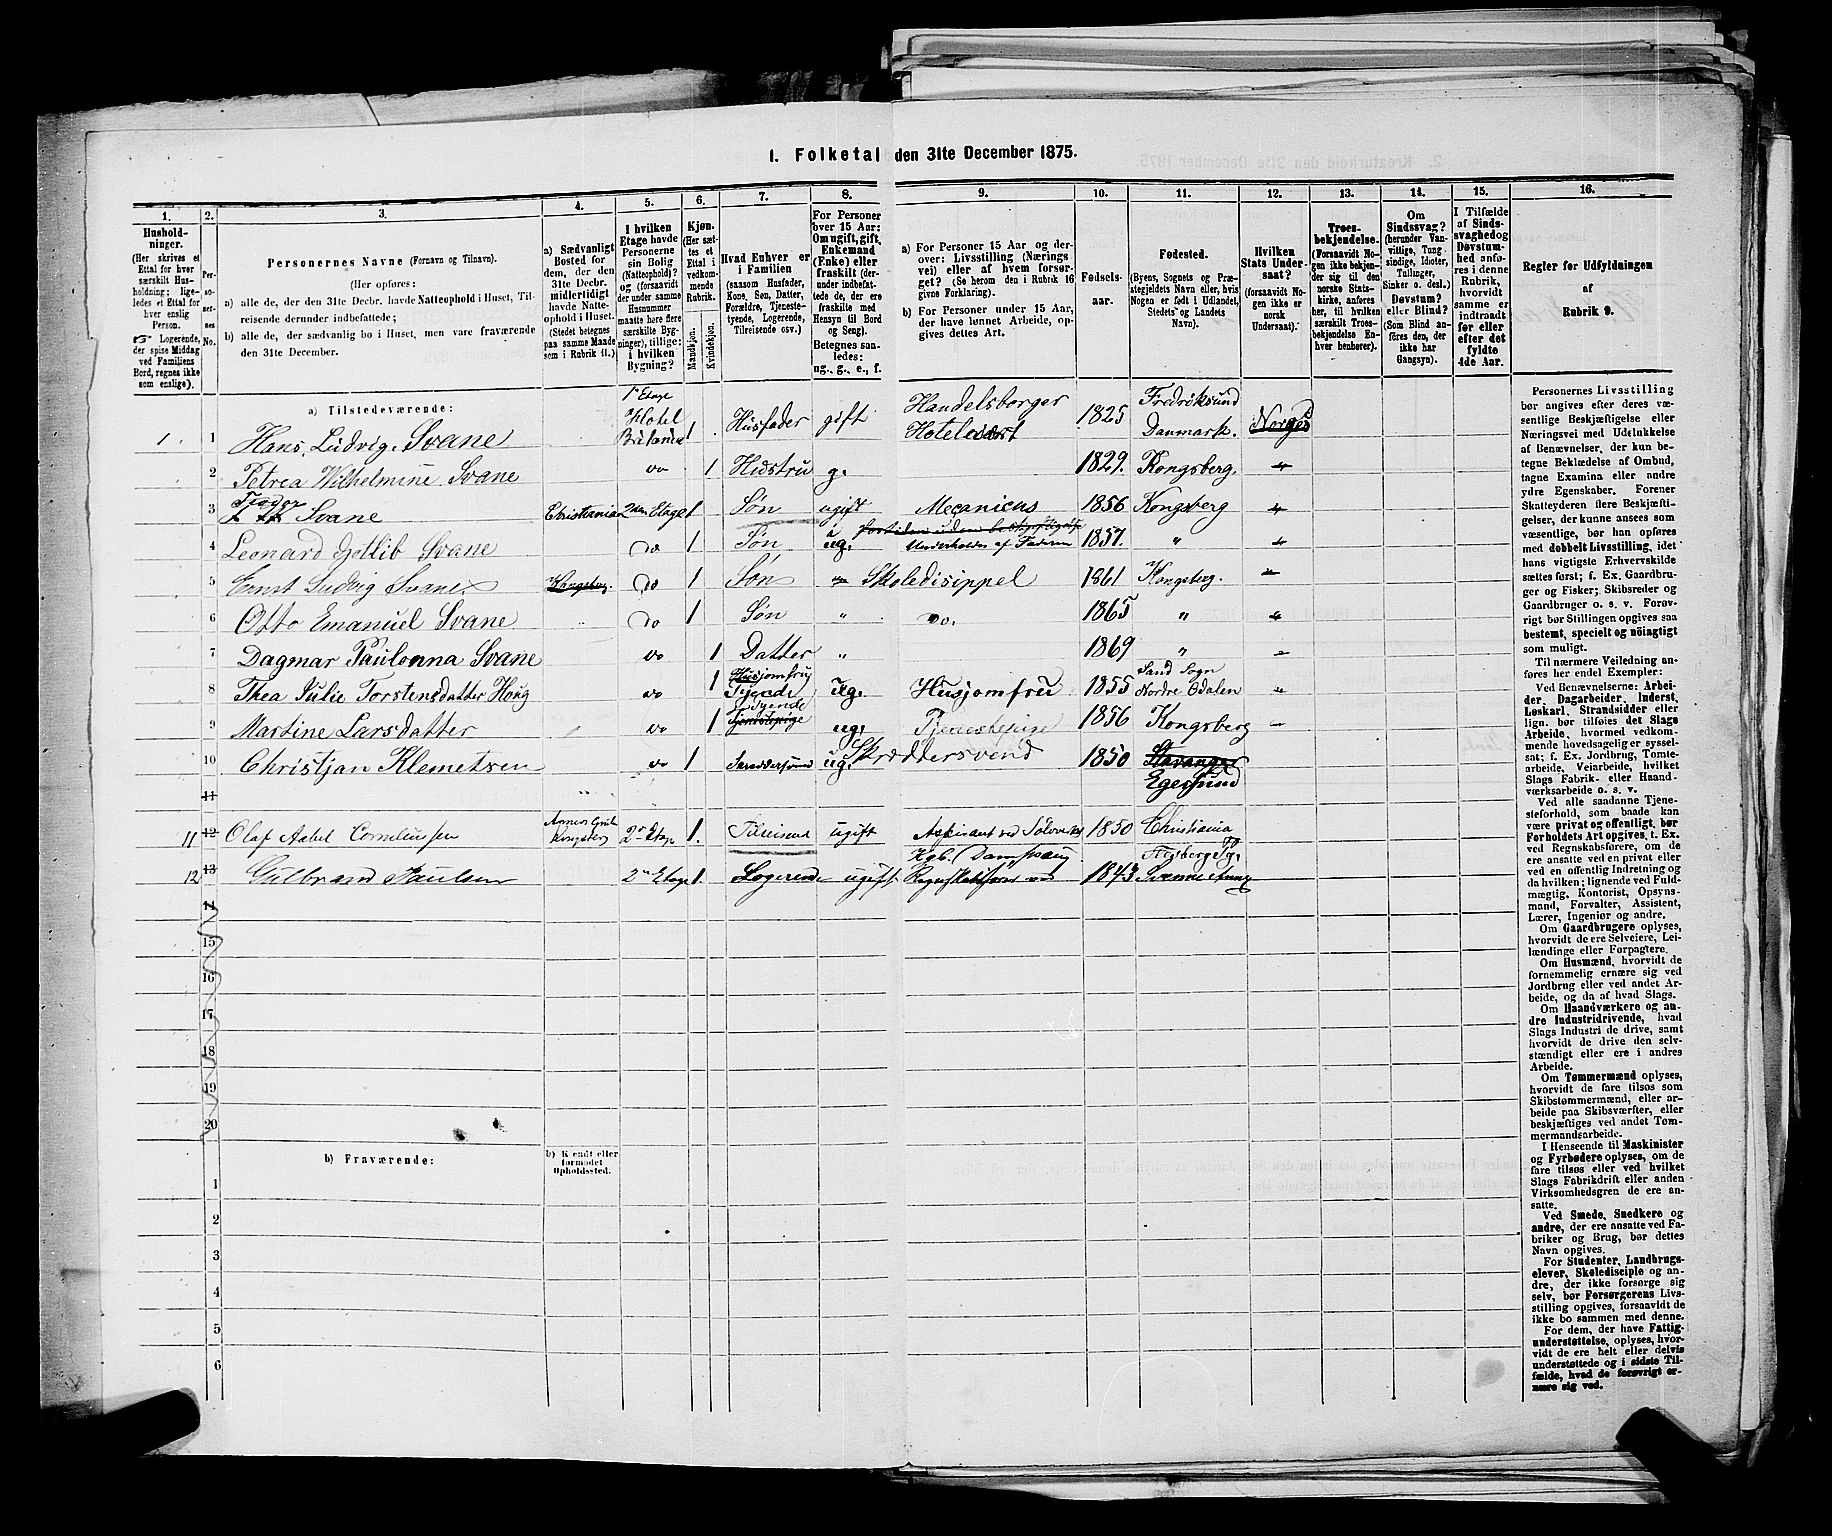 1. Folketal den 31te December 1875.
1. 2. 3. 4. 5. 6. 7. 8. 9. 10. 11. 12. 13. 14. 15. 16.
Hushold-
ninger.
(Her skrives et
Ettal for hver
særskilt Hus-
holdning; lige-
ledes et Ettal for
hver enslig
Person.
Logerende,
der spise Middag
ved Familiens
Bord, regnes ikke
som enslige).
Per-
so-
ner-
nes
No.
Personernes Navne (Fornavn og Tilnavn).
(Her opføres:
a) alle de, den 31te Decbr. havde Natteophold i Huset, Til-
reisende derunder indbefattede;
b) alle de, der sædvanlig bo i Huset, men vare fraværende
den 31te December.
a) Sædvanligt
Bosted for
dem, der den
31te Decbr.
midlertidigt
havde Natte-
ophold i Huset.
(Stedet betegnes
paa samme Maade
som i Rubrik 11.)
I hvilken
Etage havde
Personerne
sin Bolig
(Natteophold)?
og (forsaavidt
der under samme
Husnummer
maatte høre flere
særskilte Byg-
ninger), tillige:
i hvilken
Bygning?
Kjøn.
(Her sæt-
tes et
Ettal i
vedkom-
mende
Rubrik.)
Mandkjøn.
Kvindekjøn.
Hvad Enhver er
i Familien
(saasom Husfader,
Kone, Søn, Datter,
Forældre, Tjeneste-
tyende, Logerende,
Tilreisende osv.)
For Personer
over 15 Aar:
Om ugift, gift,
Enkemand
(Enke) eller
fraskilt (der-
under indbefat-
tede de, der ere
fraskilte med
Hensyn til Bord
og Seng).
Betegnes saa-
ledes:
ug., g., e., f.
a) For Personer 15 Aar og der-
over: Livsstilling (Nærings
vei) eller af hvem forsør-
get? (Se herom den i Rubrik 16
givne Forklaring).
b) For Personer under 15 Aar,
der have lønnet Arbeide, op-
gives dettes Art.
Fødsels-
aar.
Fødested.
(Byens, Sognets og Præ-
stegjeldets Navn eller, hvis
Nogen er født i Udlandet,
Stedets og Landets
Navn).
Hvilken
Stats Under-
saat?
(forsaavidt No-
gen ikke er
norsk
Undersaat).
Troes-
bekjendelse.
(Forsaavidt No-
gen ikke bekjen-
der sig til den
norske Stats-
kirke, anføres
her, til hvilken
særskilt Troes-
bekjendelse En-
hver henhører).
Om
Sindssvag?
(herunder Van-
vittige, Tung-
sindige, Idioter,
Tullinger,
Sinker o. desl.)
Døvstum?
eller Blind?
(Som Blind an-
føres den, der
ikke har
Gangsyn).
I Tilfælde
af Sinds-
svaghed og
Døvstum-
hed anfø-
res i denne
Rubrik,
hvorvidt
samme er
indtraadt
før eller
efter det
fyldte
4de Aar.
Regler for Udfyldningen
af
Rubrik 9.
a) Tilstedeværende:
1 1 Hans Ludvig Svane 1ste Etage Hotel Britania 1 Husfader gift Handelsborger Hotelvært 1825 Fredriksund Danmark. Norges
2 Petrea Wilhelmine Svane do 1 Hustru g. 1829. Kongsberg. "
3 Svane Christiania 2den Etage 1 Søn ugift Mecanicus 1856 Kongsberg "
4 Leonard Gotlib Svane do 1 Søn ug. Underholdes af Faderen 1857. " "
5 Ernst Ludvig Svane Kongsberg do 1 Søn " Skoledisippel 1861 Kongsberg. "
6 Otto Emanuel Svane do 1 Søn " do. 1865 " "
7 Dagmar Paulonna Svane do 1 Datter " 1869 " "
8 Thea Julie Torstensdatter Houg do 1 Husjomfru Tyende ug. Husjomfru 1855 Sand Sogn Nordre Odalen "
9 Martine Larsdatter do 1 Tyende Tjenestepige ug. Tjenestepige 1856 Kongsberg "
10 Christjan Klemetsen do 1 Skræddersvend ug. Skræddersvend 1850 Stavanger
11 Egersund
11 12 Olaf Aabel Corneliussen Kongsberg 2n Etage 1. Tilreisend ugift Aspirant ved Sølvverket 1850 Christiania
12 13 Gulbrand Paulsen 2n Etage 1. Logerende ugift. Kgb. Dampsaug 1843 Svenne
14
15
16
17
18
19
20
b) Fraværende:
b) Kjendt eller
formodet
Opholdssted.
1
2
3
4
5
6
Personernes Livsstilling
bør angives efter deres væ-
sentlige Beskjæftigelse eller
Næringsvei med Udelukkelse
af Benævnelser, der kun be-
tegne Beklædelse af Ombud,
tagne Examina eller andre
ydre Egenskaber. Forener
Skatteyderen flere Beskjæfti-
gelser, der kunne ansees som
væsentlige, bør han opføres
med dobbelt Livsstilling, idet
hans vigtigste Erhvervskilde
sættes først; f. Ex. Gaardbru-
ger og Fisker; Skibsreder og
Gaardbruger o. s. v. Forøv-
rigt bør Stillingen opgives saa
bestemt, specielt og nøiagtigt
som muligt.
Til nærmere Veiledning an-
føres her endel Exempler:
Ved Benævnelserne: Arbei-
der, Dagarbeider, Inderst,
Løskarl, Strandsidder eller
lign. bør tilføies det Slags
Arbeide, hvormed vedkom-
mende hovedsagelig er syssel-
sat; f. Ex. Jordbrug, Tomte-
arbeide, Veiarbeide, hvilket
Slags Fabrik- eller Haand-
værksarbeide o. s. v.
Ved alle saadanne Tjene-
steforhold, som baade kan
være privat og offentlig, bør
Forholdets Art opgives, t. Ex.
ved Regnskabsførere, om de
ere ansatte ved en privat eller
en offentlig Indretning og
da hvilken; lignende ved Fuld-
mægtig, Kontorist, Opsyns-
mand, Forvalter, Assistent,
Lærer, Ingeniør og andre.
Om Gaardbrugere oplyses,
hvorvidt de ere Selveiere, Lei-
lændinge eller Forpagtere.
Om Husmænd, hvorvidt de
fornemmelig ernære sig ved
Jordbrug eller ved andet Ar-
beide, og da af hvad Slags.
Om Haandværkere og an-
dre Industridrivende, hvad
Slags Industri de drive, samt
hvorvidt de drive den selv-
stændigt eller ere i andres
Arbeide.
Om Tømmermænd oplyses,
hvorvidt de fare tilsøs som
Skibstømmermænd, eller ar-
beide paa Skibsværfter, eller
beskjæftiges ved andet Tøm-
mermandsarbeide.
I Henseende til Maskinister
og Fyrbødere oplyses, om de
fare tilsøs eller ved hvilket
Slags Fabrikdrift eller anden
Virksomhedsgren de ere an-
satte.
Ved Smede, Snedkere og
andre, der ere ansatte ved Fa-
briker og Brug, bør dettes
Navn opgives.
For Studenter, Landbrugs-
elever, Skoledisciple og an-
dre, der ikke forsørge sig
selv, bør Forsørgerens Livs-
stilling opgives, forsaavidt de
ikke bo sammen med denne.
For dem, der have Fattig-
understøttelse, oplyses, hvor-
vidt de ere helt eller delvis
understøttede og i sidste Til-
fælde, hvad de forøvrigt er-
nære sig ved.